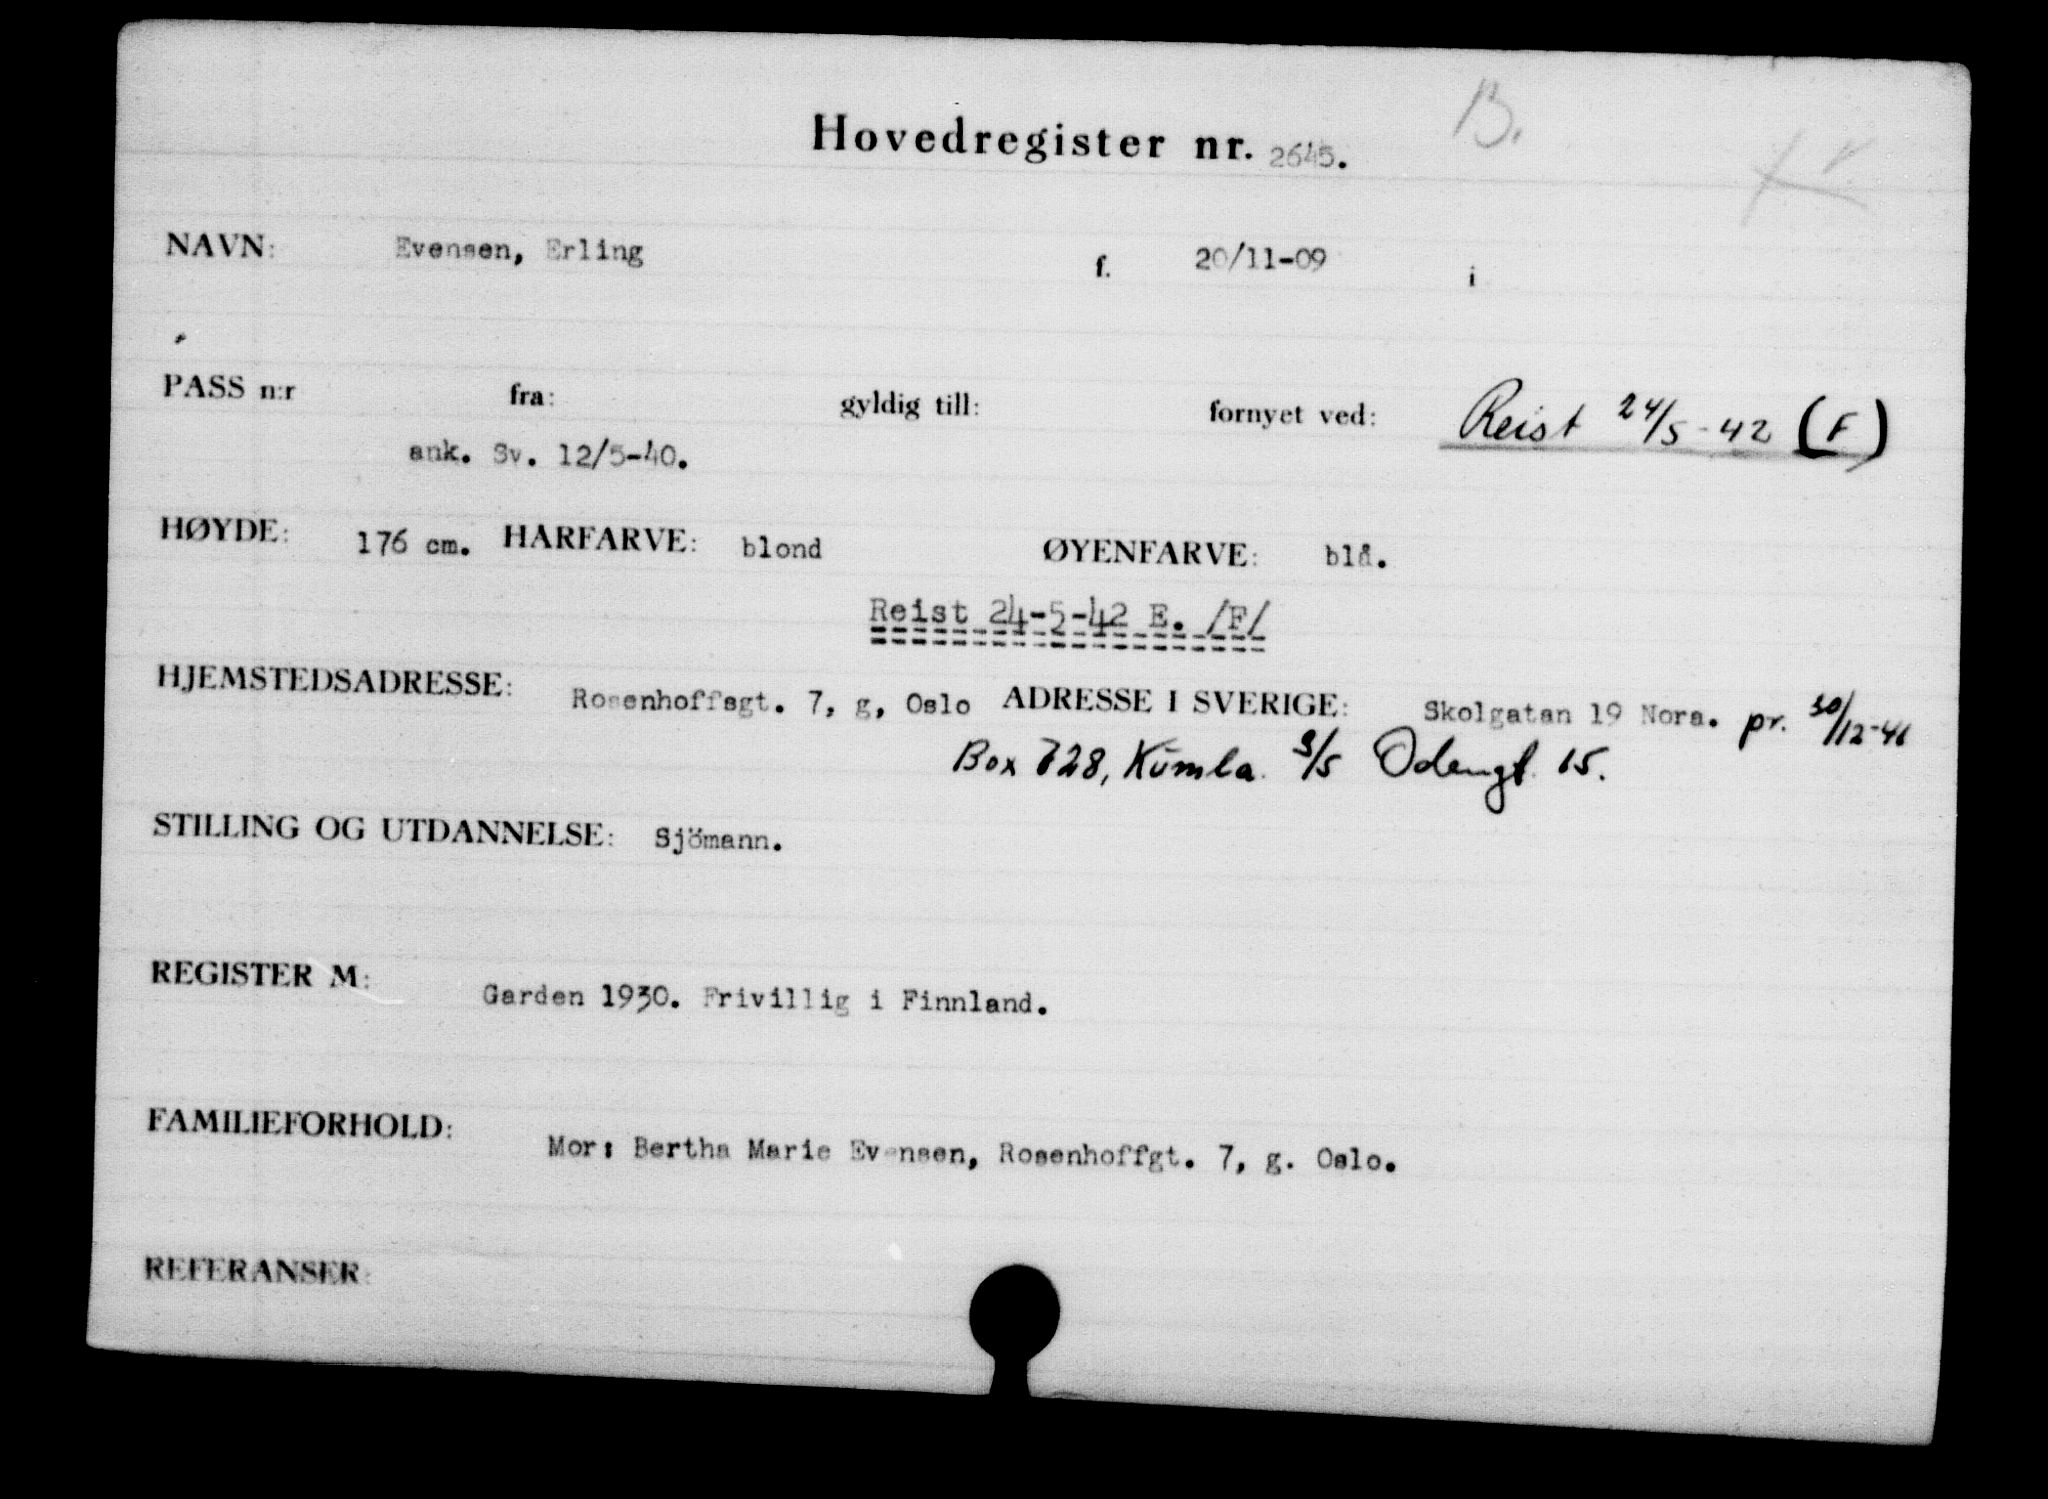 Hovedregister nr. 2645. B.
NAVN: Evensen, Erling f. 20/11-09 i
PASS n:r fra: gyldig till: fornyet ved: Reist 24/5-42 (F)
ank. Sv. 12/5-40.
HØYDE: 176 cm. HÅRFARVE: blond ØYENFARVE: blå.
Reist 24-5-42 E. /F/
HJEMSTEDSADRESSE: Rosenhoffsgt. 7, g, Oslo ADRESSE I SVERIGE: Skolgatan 19 Nora. pr. 30/12-41
Box 728, Kumla. 3/5 Odengt. 15.
STILLING OG UTDANNELSE: Sjömann.
REGISTER M: Garden 1930. Frivillig i Finnland.
FAMILIEFORHOLD: Mor: Bertha Marie Evensen, Rosenhoffgt. 7, g. Oslo.
REFERANSER: